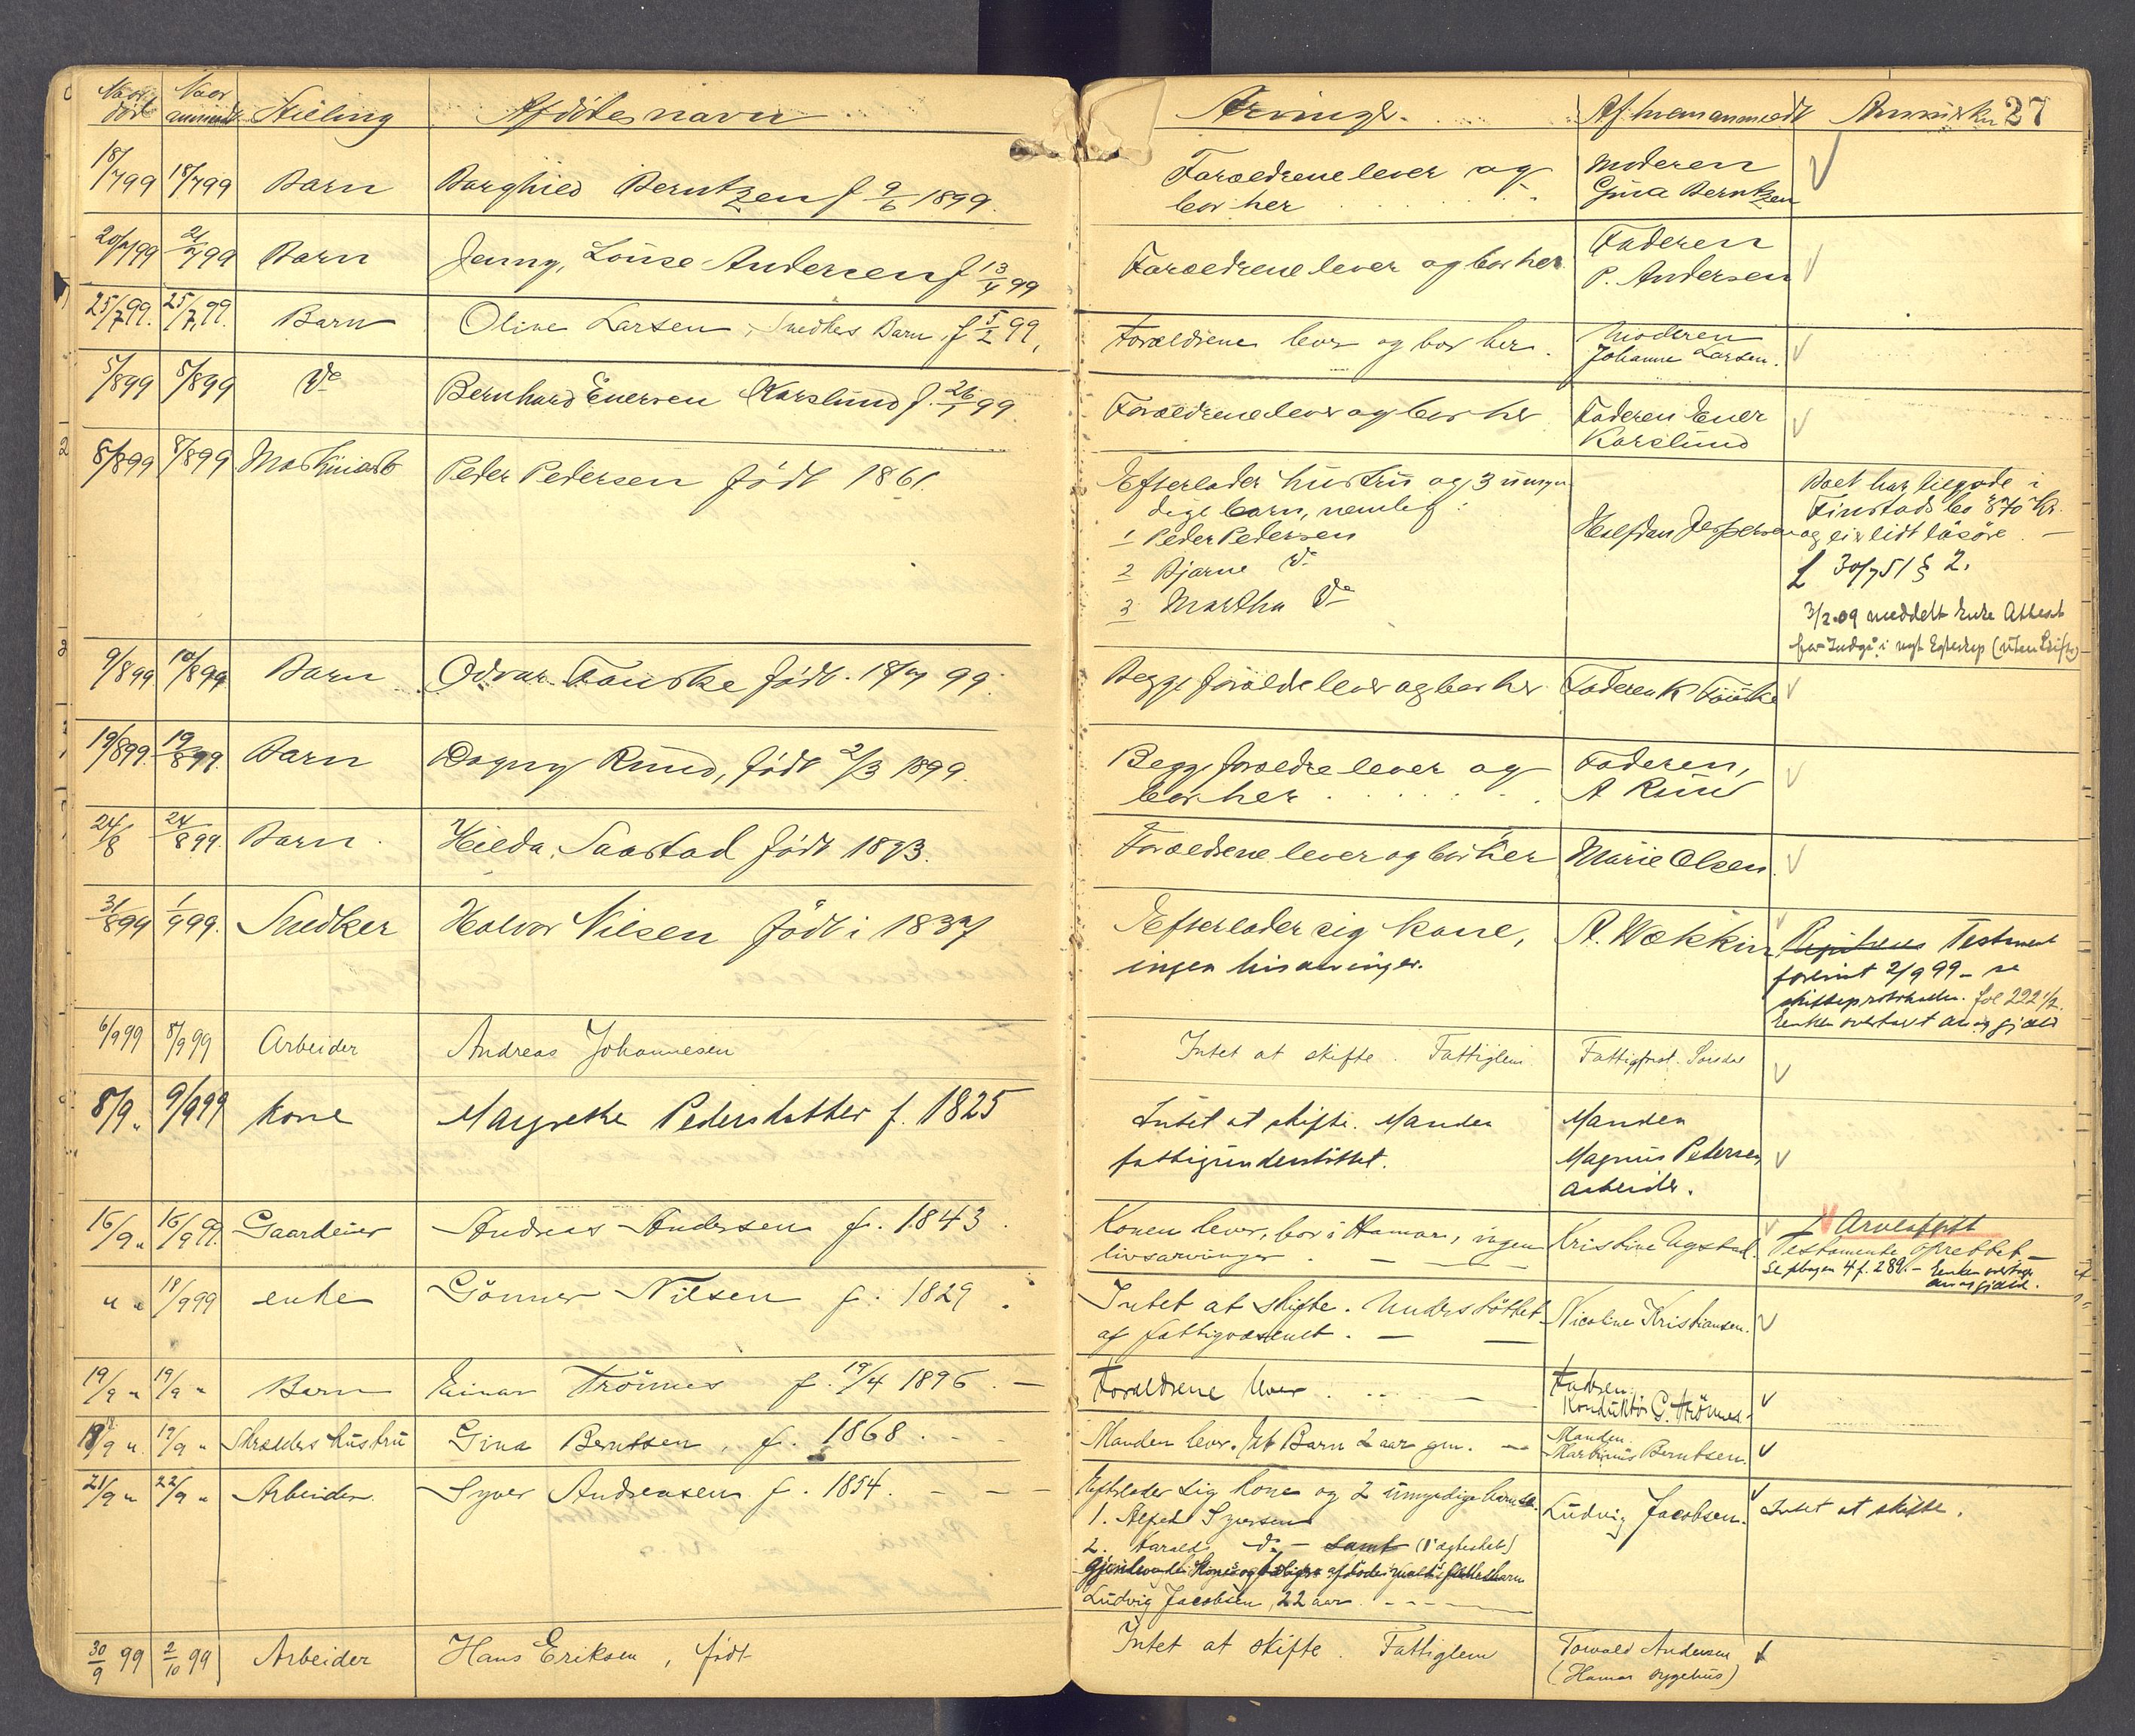 Naar død Naar anmeldt Stilling Afdødes navn Arvinger. Af hvem anmeldt Anmærkn 27
18/7 99 18/7 99 Barn Borghild Berntzen f 9/6 1899. Forældrene lever og Moderen
bor her Gina Berntzen
20/7 99 21/7 99 Barn Jenny Louise Andersen f 13/4 99 Forældrene lever og bor her. Faderen
P. Andersen
25/7 99. 25/7 99. Barn Oline Larsen, Snedkers Barn, f 5/2 99, Forældrene lever og bor her. Moderen
Johanne Larsen.
5/8 99 5/8 99 Do Bernhard Enersen Karslund f. 26/1 99. Forældrene lever og bor her Faderen Ener
Karslund
8/8 99 8/8 99 Maskinarb Peder Pedersen født 1861. Efterlader hustru og 3 umyn
dige børn, nemlig:
1 Peder Pedersen
2 Bjarne Do
3 Martha Do
Halfdan Jespersen
Boet har tilgode i
Finstads bo 870 Kr.
og eier lidt løsøre. —
L 30/7 51 § 2.
3/2.09 meddelt Enke Attest
for Indgå. i nyt Egteskp (uten Skifte)
9/8 99 10/8 99 Barn Odvar Fauske født 18/7 99. Begge forældre lever og bor her Faderen K Fauske
19/8 99. 19/8 99. Barn Dagny Ruud, født 2/3 1899 Begge forældre lever og Faderen,
bor her A Ruud
24/8 24/8 99. Barn. Hilda Saastad født 1893. Forældrene lever og bor her Marie Olsen.
31/8 99 1/9 99. Snedker Halvor Nilsen født i 1837 Efterlader sig kone, A. Wekkin Testament
ingen livsarvinger. forevist 2/9 99 - se
skifteprotokollen. fol 222 1/2.
Enken overtaft arv og gjæld
6/9 99 8/9 99 Arbeider Andreas Johannesen Intet at skifte. Fattiglem Fattigfrst. Sørsdal
8/9 " 9/9 99 Kone Margrethe Pedersdatter f. 1825 Intet at skifte. Manden Manden
fattigunderstøttet. Magnus Petersen,
arbeider.
16/9 " 16/9 99. Gaardeier Andreas Andersen f. 1843. Konen lever, bor i Hamar, ingen Kristine Aystad.
livsarvinger. — — —
L Arveafgift
Testamente oprettet —
Se pbogen 4 f. 289. - Enken overtager
arv og gjæld.
" " 18/9 99 enke Gunner Nilsen f. 1829. Intet at skifte. Understøttet Nicoline Kristiansen.
af fattigvæsenet. — —
19/9 " 19/9 " Barn Einar Trönnes f. 19/4 1896. — Forældrene lever. Faderen
Konduktör C. Trönnes.
18/9 ". 19/9 " Skrædders hustru Gina Berntsen, f. 1868. - - Manden lever. Et Barn 2 aar gm. — Manden
Martinius Berntsen.
21/9 " 22/9 " Arbeider. Syver Andreasen f. 1854. - - - Efterlader sig kone og 2 umyndige børn Ludvig Jacobsen. Intet at skifte.
1. Alfred Syversen
2. Harald do - samt (i ægteskab)
Ludvig Jacobsen, 22 aar. - - - -
30/9 99 2/10 99 Arbeider Hans Eriksen, født Intet at skifte. Fattiglem Torvald Andersen
(Hamar sygehus)